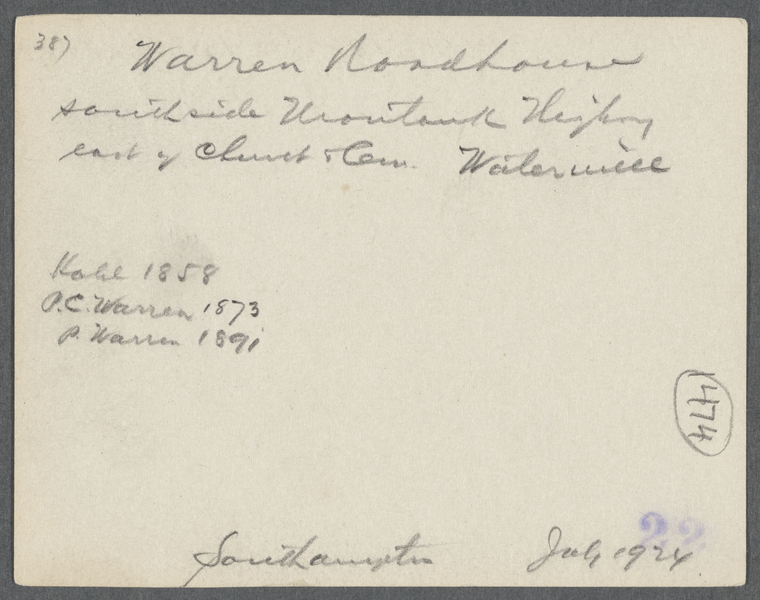 387
Warren Roadhouse
south side Montauk Highwy
east of Church & Cem. Watermill
Kohl 1858
P.C. Warren 1873
P. Warren 1891
1474
22
Southampton July 1924